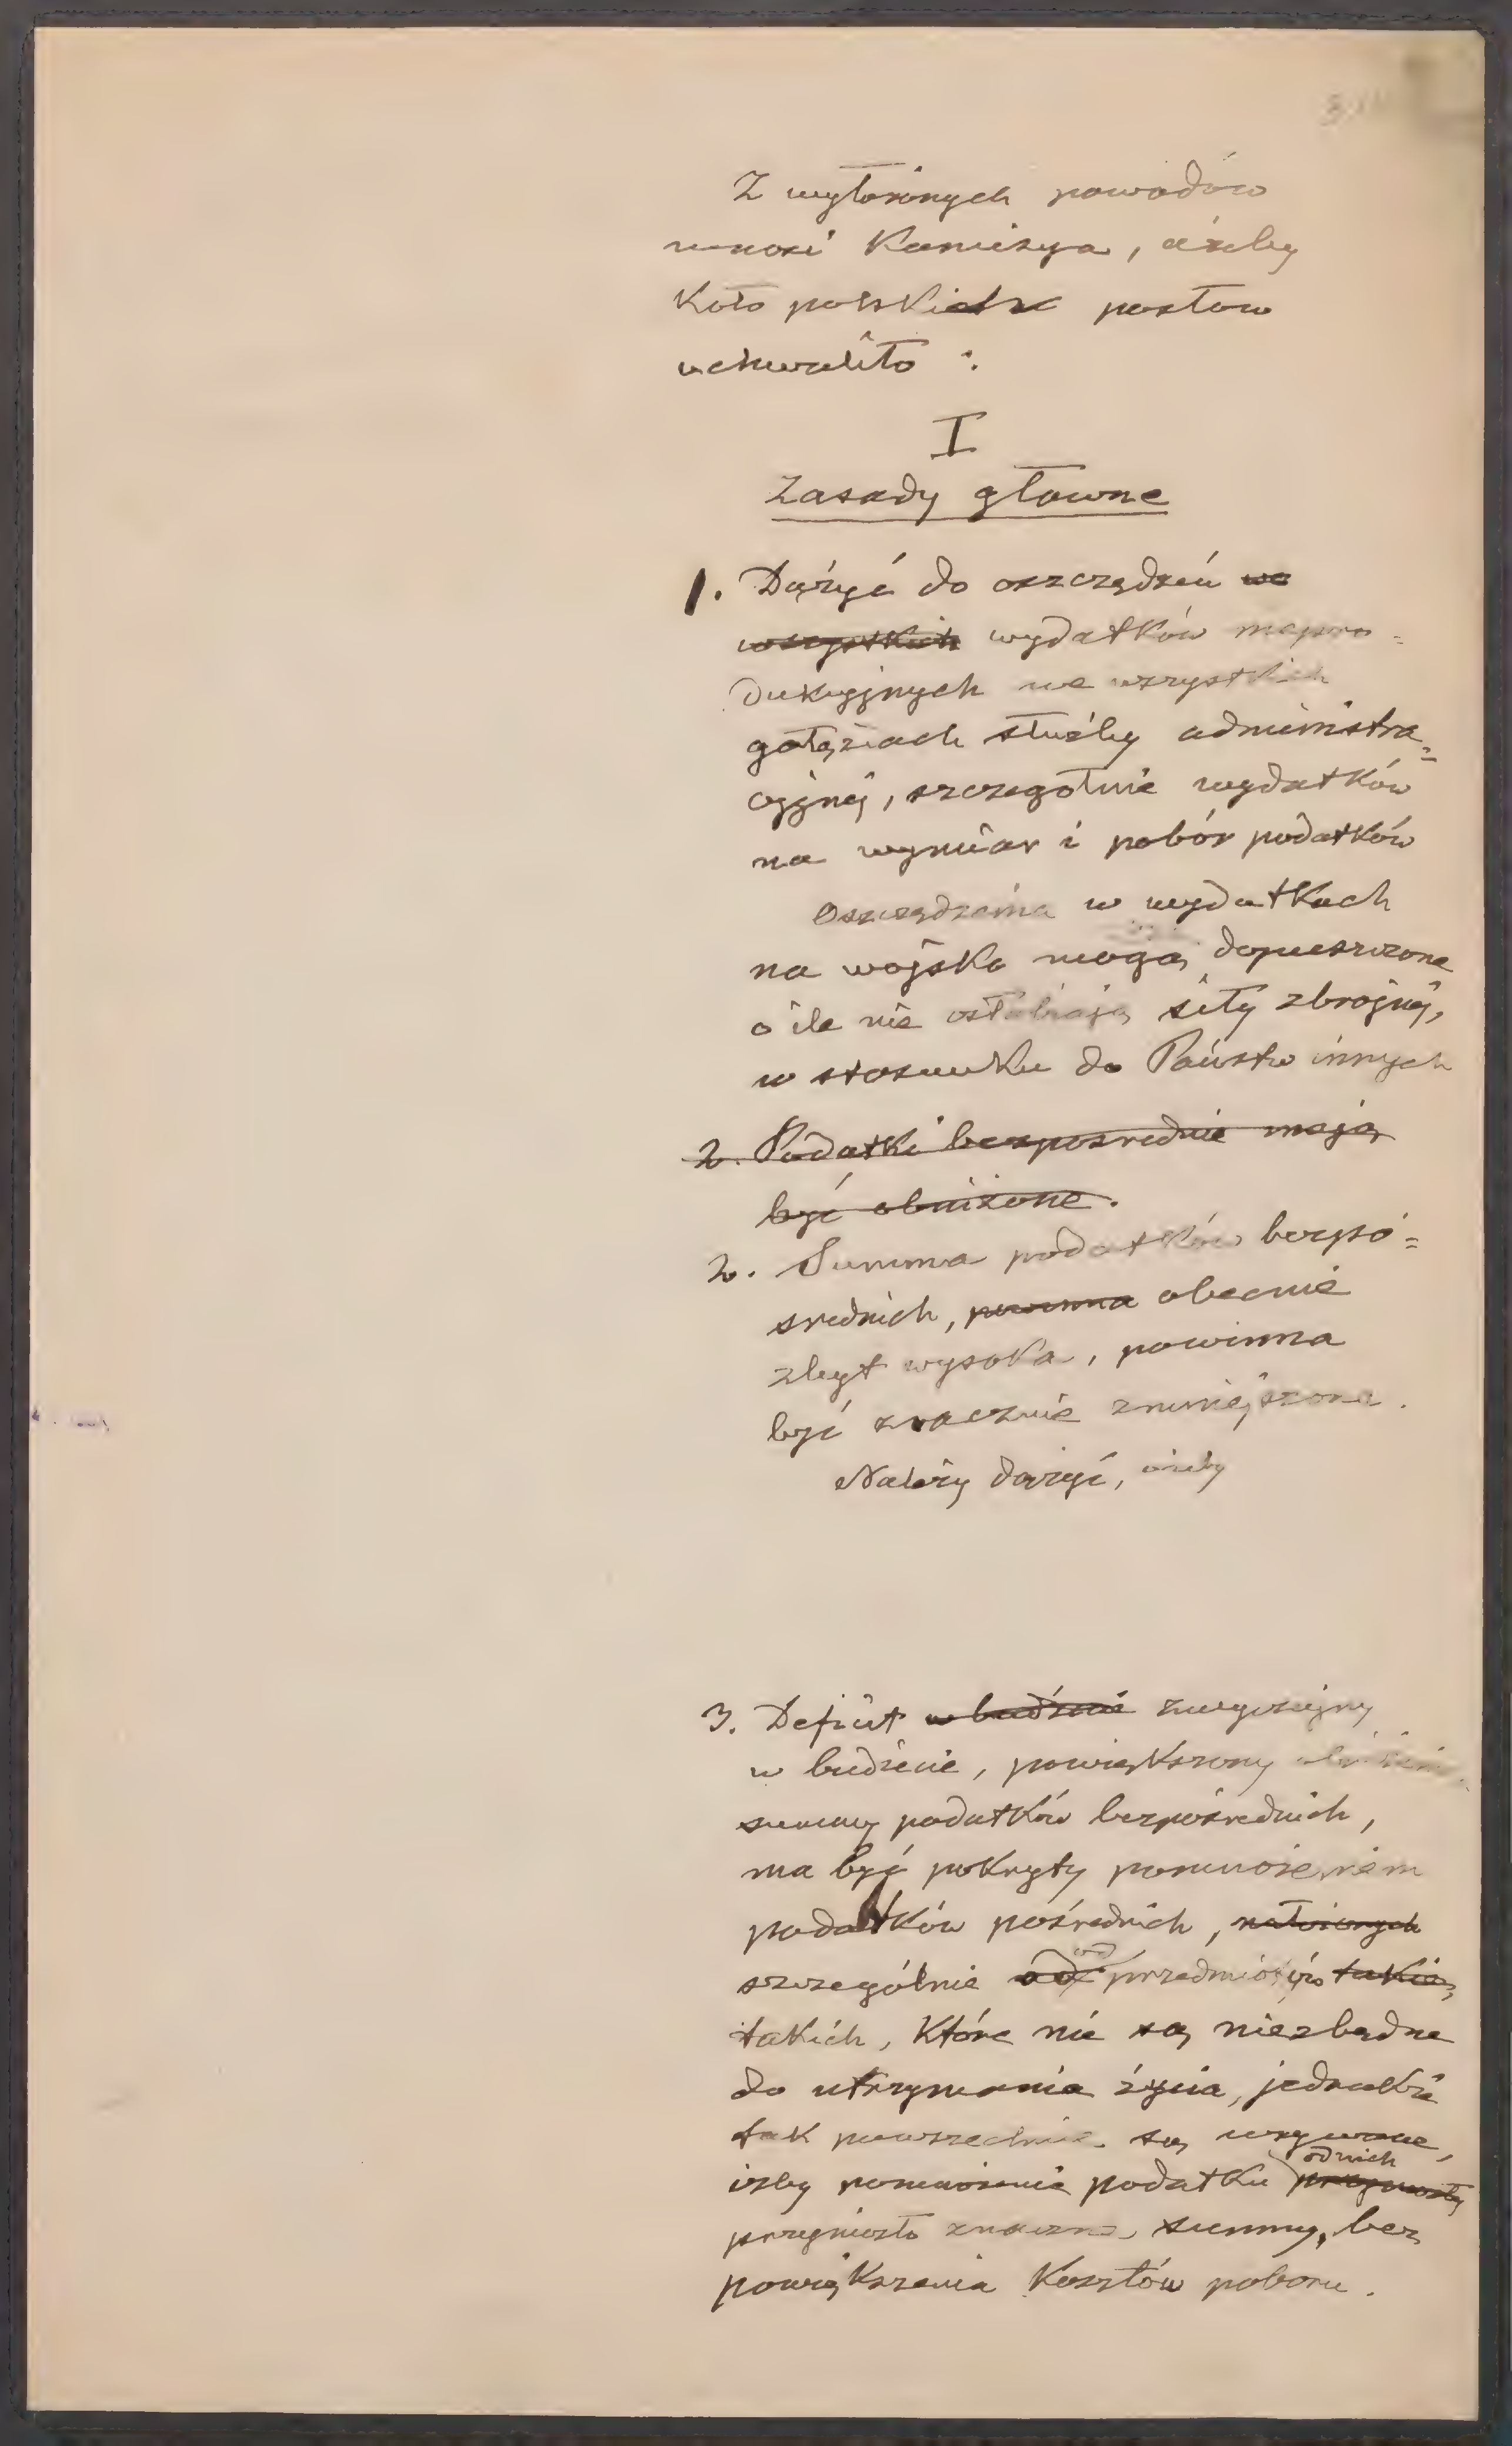 Z wyłożonych powodów
wnosi Komisya, ażeby
Koło polskich posłow
uchwaliło :
I
Zasady główne
1. Dążyć do oszczędzeń we
wszystkich wydatków niepro=
dukcyjnych we wszystkich
gałęziach służby administra=
cyjnej, szczegolnie wydatków
na wymiar i pobór podatków
Oszczędzenia w wydatkach
na wojsko mogą dopuszczone
o ile nie osłabiają siły zbrojnej,
w stosunku do Państw innych
2. Podatki bezposrednie mają
być obniżone.
2. Summa podatków bezpo=
srednich, powinna obecnie
zbyt wysoka, powinna
być znacznie zmniejszona.
Należy dążyć, ażeby
3. Deficit w budżecie zwyczajny
w budżecie, powiększony
summy podatków bezpośrednich,
ma być pokryty pomnożeniem
podatków pośrednich, nałożonych
szczególnie od przedmiotów takie
takich, które nie są niezbędne
do utrzymania życia, jednakże
tak powszechnie są używane,
iżby pomnożenie podatku od nich
przyniosło znaczną summę, bez
powiększenia Kosztów poboru.